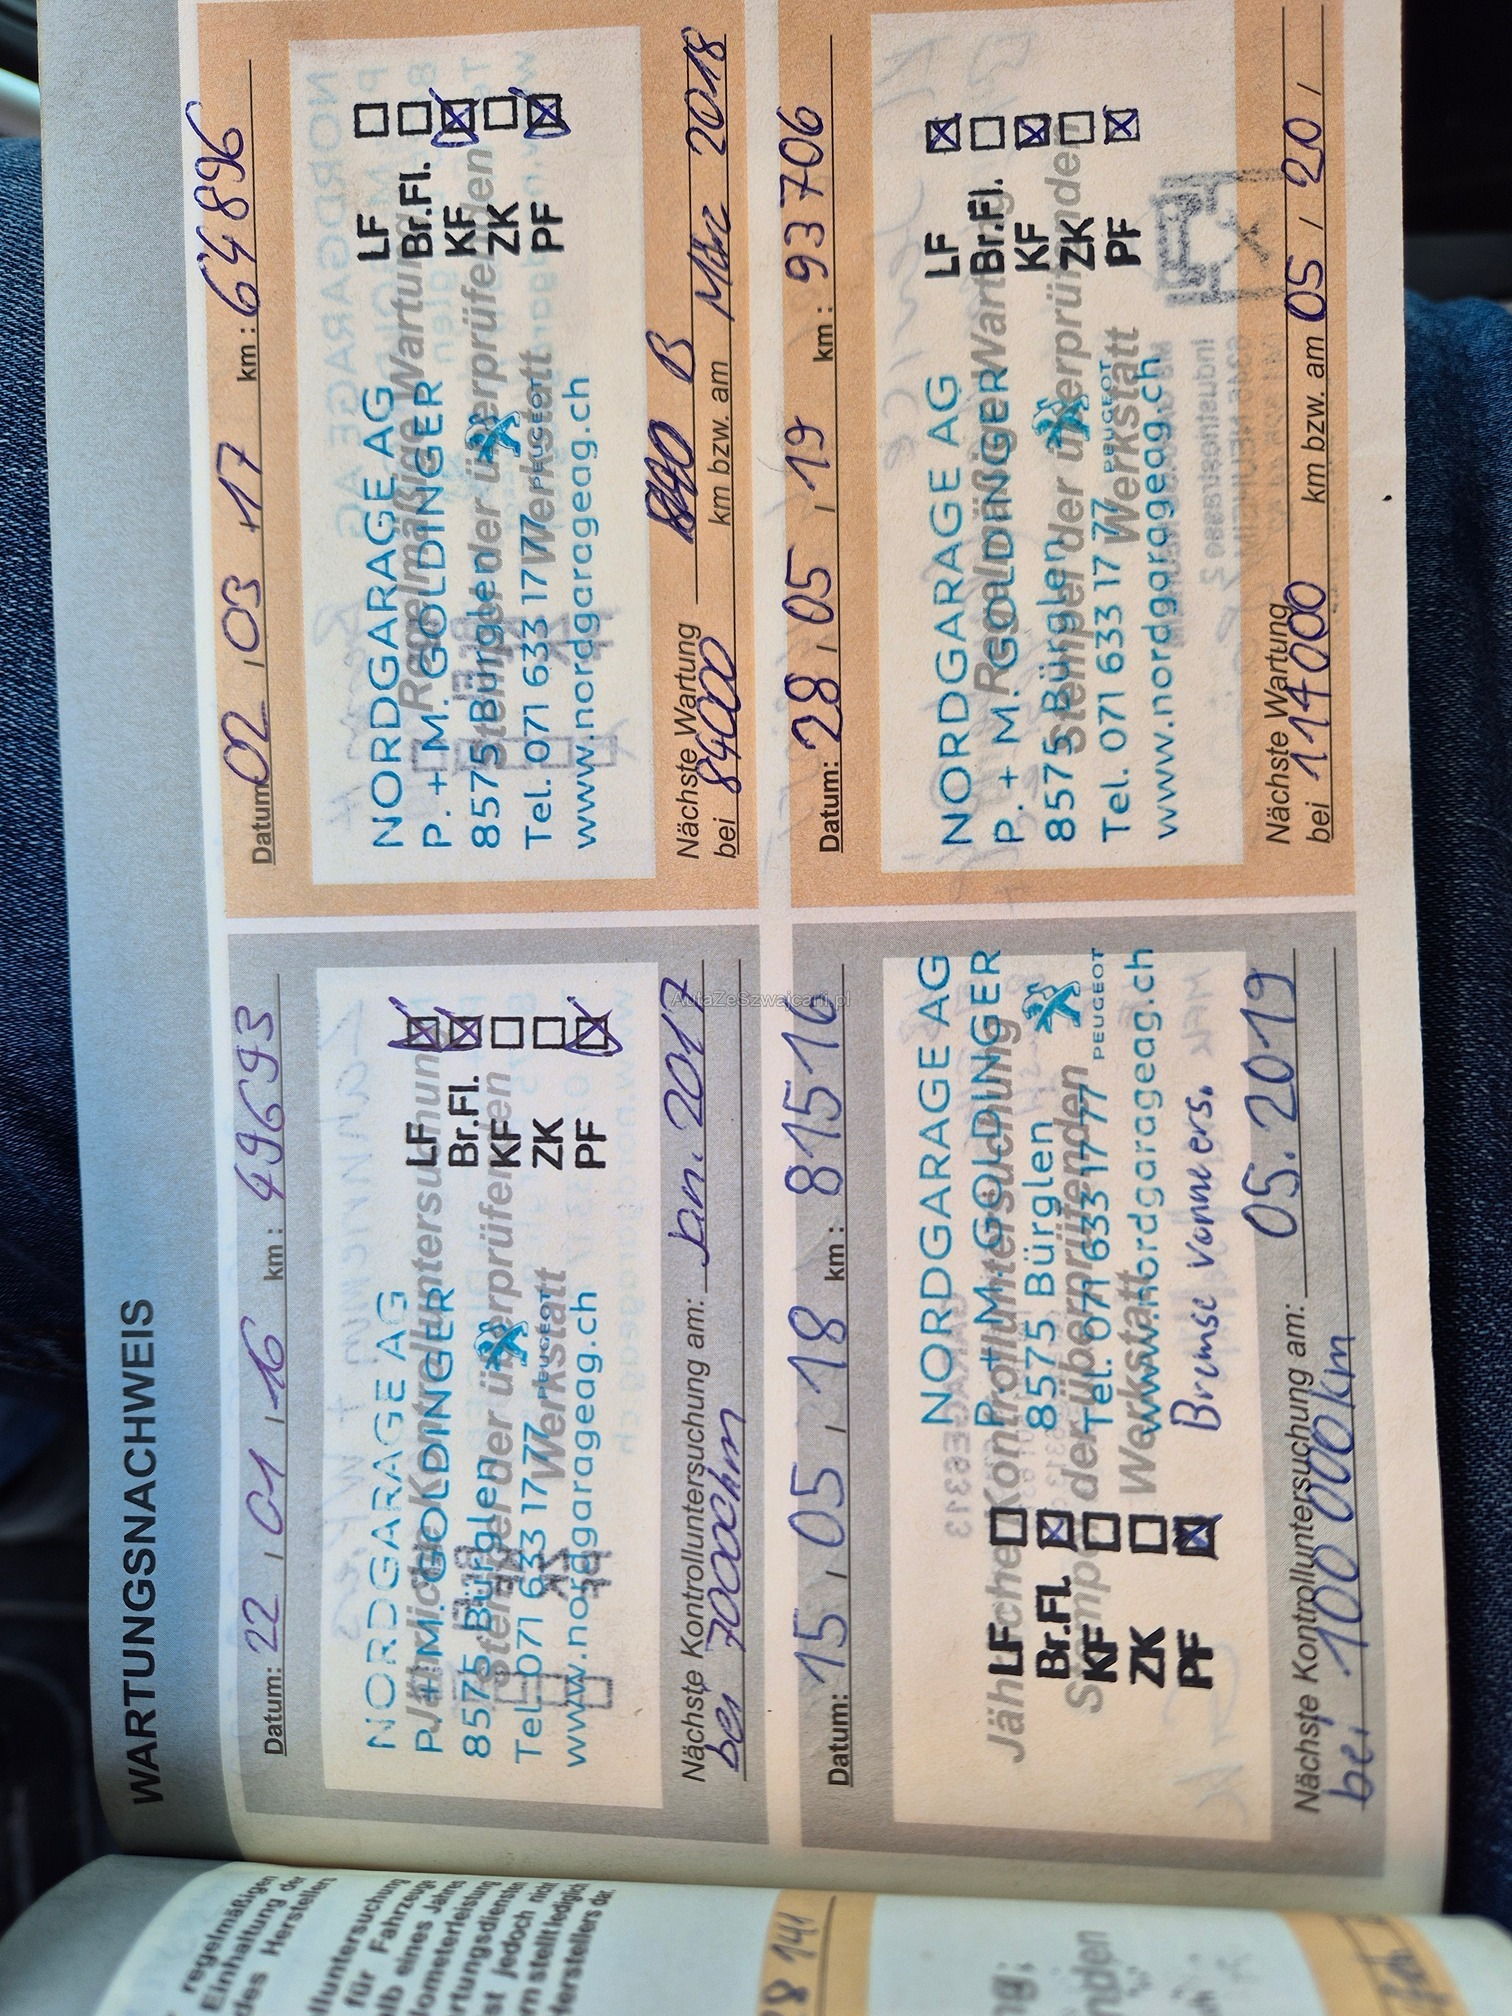 WARTUNGSNACHWEIS
Datum: 22 . 01 . 16 km : 49693
Jährliche Kontrolluntersuchung
Stempel der überprüfenden
Werkstatt
NORDGARAGE AG
P. + M. GOLDINGER
8575 Bürglen
Tel. 071 633 17 77 PEUGEOT
www.nordgarageag.ch
LF
Br.Fl.
KF
ZK
PF
Nächste Kontrolluntersuchung am: Jan. 2017
bei 70000km
Datum: 02 . 03 . 17 km : 64896
Regelmäßige Wartung
Stempel der überprüfenden
Werkstatt
NORDGARAGE AG
P. + M. GOLDINGER
8575 Bürglen
Tel. 071 633 17 77 PEUGEOT
www.nordgarageag.ch
LF
Br.Fl.
KF
ZK
PF
Nächste Wartung B
bei 84000 km bzw. am März 2018
Datum: 15 . 05 . 18 km : 81516
Jährliche Kontrolluntersuchung
Stempel der überprüfenden
Werkstatt
LF
Br.Fl.
KF
ZK
PF
NORDGARAGE AG
P. + M. GOLDINGER
8575 Bürglen
Tel. 071 633 17 77 PEUGEOT
www.nordgarageag.ch
Bremse vorne ers.
Nächste Kontrolluntersuchung am: 05. 2019
bei 100 000 km
Datum: 28 . 05 . 19 km : 93706
Regelmäßige Wartung
Stempel der überprüfenden
Werkstatt
NORDGARAGE AG
P. + M. GOLDINGER
8575 Bürglen
Tel. 071 633 17 77 PEUGEOT
www.nordgarageag.ch
LF
Br.Fl.
KF
ZK
PF
Nächste Wartung
bei 114000 km bzw. am 05 / 20 /
regelmäßigen
Einhaltung der
des Herstellers
für Fahrzeuge
eines Jahres
jedoch nicht
stellt lediglich
Herstellers dar.
AutaZeSzwajcarii.pl